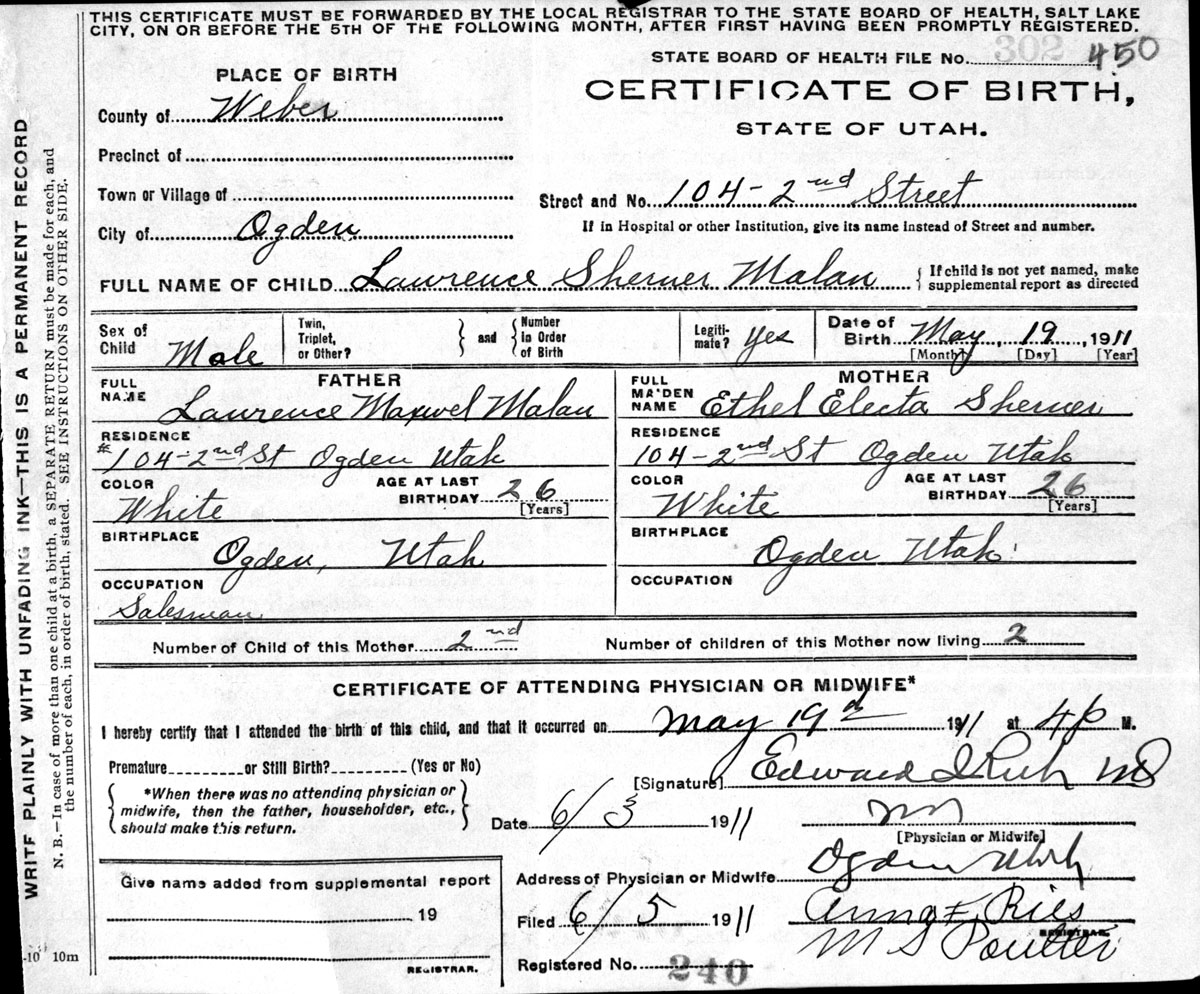 THIS CERTIFICATE MUST BE FORWARDED BY THE LOCAL REGISTRAR TO THE STATE BOARD OF HEALTH, SALT LAKE
CITY, ON OR BEFORE THE 5TH OF THE FOLLOWING MONTH, AFTER FIRST HAVING BEEN PROMPTLY REGISTERED.
STATE BOARD OF HEALTH FILE No. 302 450
PLACE OF BIRTH
CERTIFICATE OF BIRTH,
STATE OF UTAH.
County of Weber
Precinct of
Town or Village of
Street and No. 104 - 2nd Street
City of Ogden
If in Hospital or other Institution, give its name instead of Street and number.
FULL NAME OF CHILD Lawrence Sherner Malan
If child is not yet named, make
supplemental report as directed
Sex of Child Male
Twin, Triplet, or Other?
and
Number in Order of Birth
Legiti- mate? Yes
Date of Birth May 19, 1911
[Month] [Day] [Year]
FATHER
FULL NAME Lawrence Maxwel Malan
RESIDENCE
104-2nd St Ogden Utah
COLOR White
AGE AT LAST BIRTHDAY 26
[Years]
BIRTHPLACE Ogden, Utah
OCCUPATION
Salesman
MOTHER
FULL MAIDEN NAME Ethel Electa Sherner
RESIDENCE
104-2nd St Ogden Utah
COLOR White
AGE AT LAST BIRTHDAY 26
[Years]
BIRTHPLACE Ogden Utah
OCCUPATION
Number of Child of this Mother 2nd
Number of children of this Mother now living 2
CERTIFICATE OF ATTENDING PHYSICIAN OR MIDWIFE*
I hereby certify that I attended the birth of this child, and that it occurred on May 19d 1911 at 4 p M.
Premature or Still Birth? (Yes or No)
[Signature] Edward I Rich MD
*When there was no attending physician or
midwife, then the father, householder, etc.,
should make this return.
Date 6/3 1911
[Physician or Midwife]
Address of Physician or Midwife Ogden Utah
Give name added from supplemental report
19
REGISTRAR.
Filed 6/5 1911
Anna F. Ries
REGISTRAR.
M S Poulter
Registered No. 240
WRITE PLAINLY WITH UNFADING INK—THIS IS A PERMANENT RECORD
N. B.—In case of more than one child at a birth, a SEPARATE RETURN must be made for each, and
the number of each, in order of birth, stated. SEE INSTRUCTIONS ON OTHER SIDE.
-10 10m